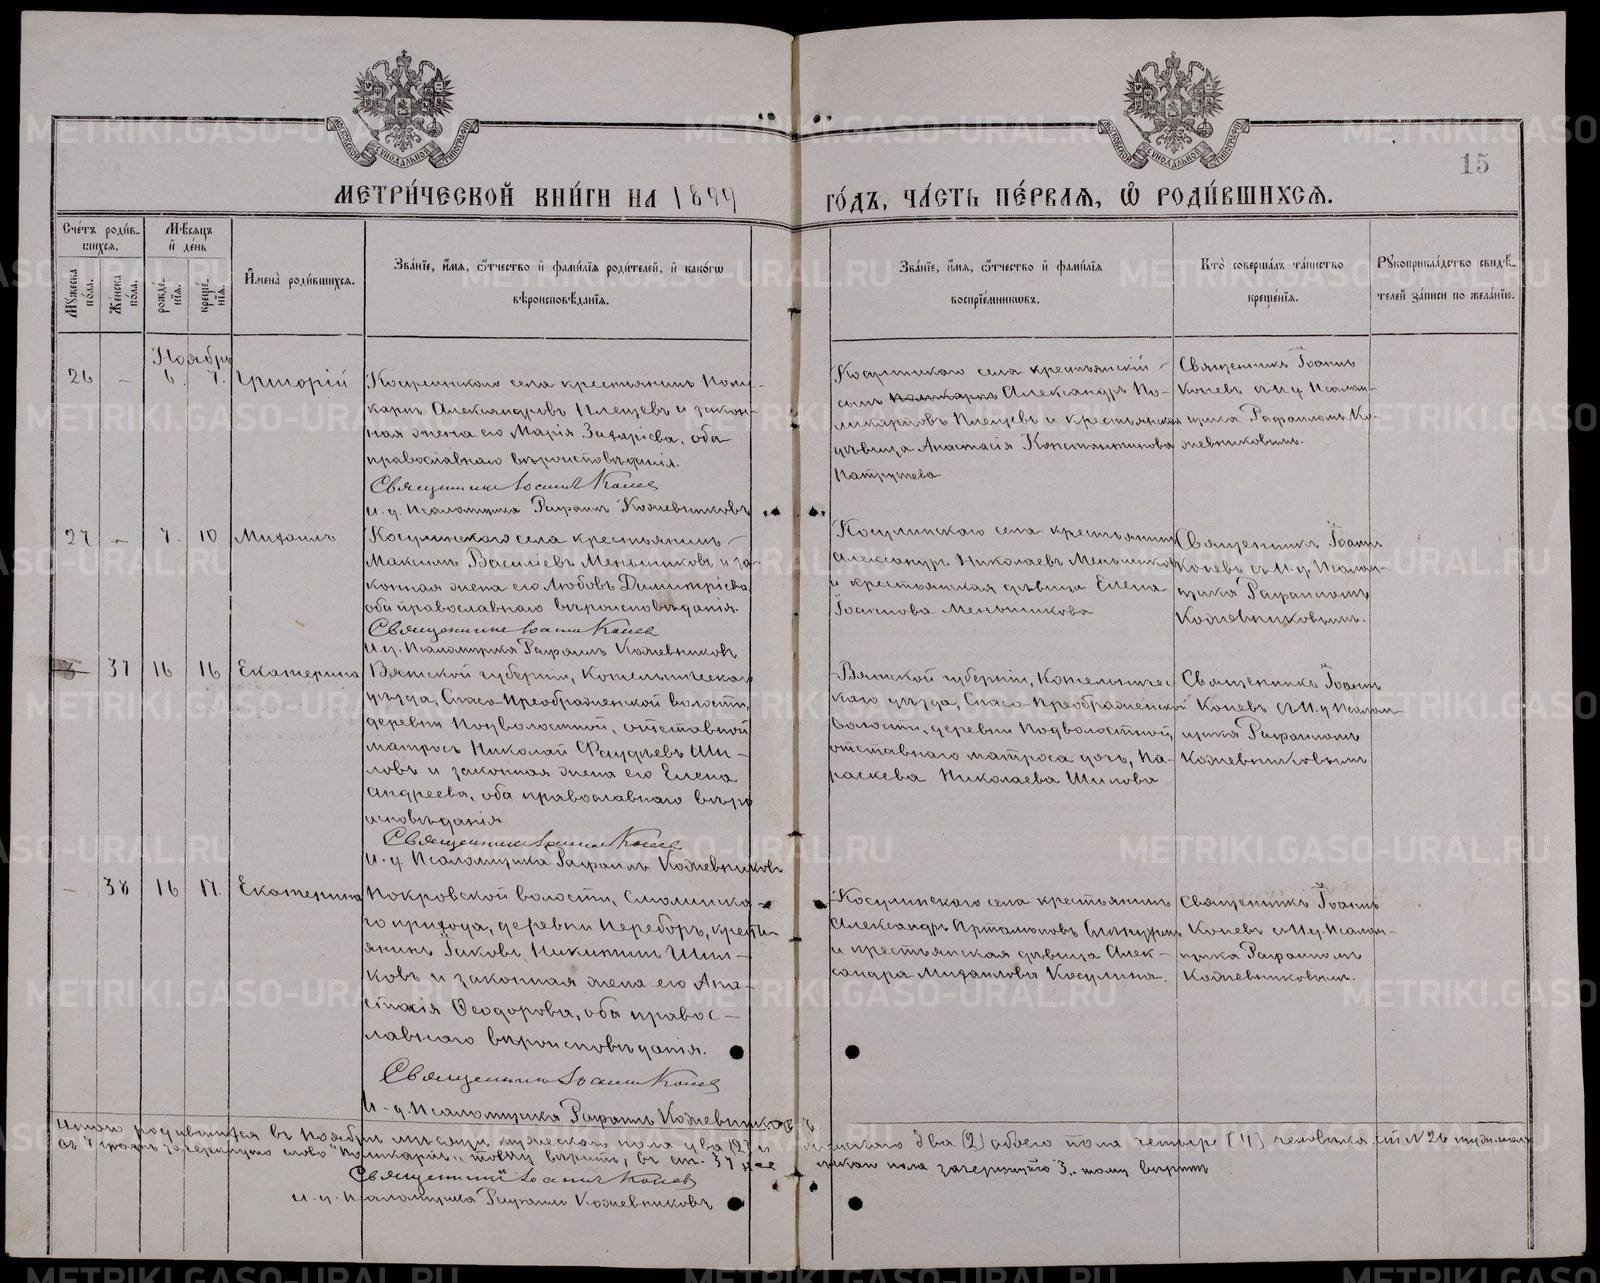 15
МЕТРИ́ЧЕСКОЙ КНИ́ГИ НА 1899 ГО́ДЪ, ЧА́СТЬ ПЕ́РВАЯ, Ѡ҆ РОДИ́ВШИХСЯ.
Сче́тъ роди́в-
шихся.
Мꙋжеска по́ла.
Же́нска по́ла.
Мѣ́сяцъ и҆ де́нь
рожде́-нїя.
креще́-нїя.
И҆мена̀ роди́вшихся.
Зва́нїе, и҆́мя, ѻ҆́тчество и҆ фами́лїя роди́телей, и҆ како́гѡ
вѣроисповѣ́данїя.
Зва́нїе, и҆́мя, ѻ҆́тчество и҆ фами́лїя
воспрїе́мниковъ.
Кто̀ соверша́лъ та́инство
креще́нїя.
Рꙋкоприкла́дство свидѣ́-
телей за́писи по жела́нїю.
Ноябрь
26 – 6. 7. Григорій
Косулинскаго села крестьянинъ Поли-
карпъ Александровъ Плещевъ и закон-
ная жена его Марія Захаріева, оба
православнаго вѣроисповѣданія.
Священникъ Іоаннъ Коневъ
И. д. Псаломщика Рафаилъ Кожевниковъ
Косулинскаго села крестьянскій
сынъ Поликарпъ Александръ По-
ликарповъ Плещевъ и крестьянская
дѣвица Анастасія Константинова
Патрушева
Священникъ Іоаннъ
Коневъ съ И. д. Псалом-
щика Рафаиломъ Ко-
жевниковымъ.
27 – 7. 10 Михаилъ
Косулинскаго села крестьянинъ
Максимъ Василіевъ Меньшиковъ и за-
конная жена его Любовь Димитріева
оба православнаго вѣроисповѣданія.
Священникъ Іоаннъ Коневъ
И. д. Псаломщика Рафаилъ Кожевниковъ
Косулинскаго села крестьянинъ
Александръ Николаевъ Меньшиковъ
и крестьянская дѣвица Елена
Іоаннова Меньшикова
Священникъ Іоаннъ
Коневъ съ И. д. Псалом-
щика Рафаиломъ
Кожевниковымъ.
3 37 16 16 Екатерина
Вятской губерніи, Котельническаго
уѣзда, Спасо-Преображенской волости,
деревни Подволостной, отставной
матросъ Николай Ши-
ловъ и законная жена его Елена
Андреева, оба православнаго вѣро
исповѣданія
Священникъ Іоаннъ Коневъ
И. д. Псаломщика Рафаилъ Кожевниковъ
Вятской губерніи, Котельничес
каго уѣзда, Спасо-Преображенской
волости, деревни Подволостной,
отставнаго матроса дочь, Па-
раскева Николаева Шилова
Священникъ Іоаннъ
Коневъ съ И. д. Псалом-
щика Рафаиломъ
Кожевниковымъ
– 38 16 17. Екатерина
Покровской волости, Смолинска-
го прихода, деревни Переборъ, кресть-
янинъ Іаковъ Никитинъ Шил-
ковъ и законная жена его Ана-
стасія Ѳеодорова, оба правос-
лавнаго вѣроисповѣданія.
Священникъ Іоаннъ Коневъ
И. д. Псаломщика Рафаилъ Кожевниковъ
Косулинскаго села крестьянинъ
Александръ Артамоновъ
и крестьянская дѣвица Алек-
сандра Михаилова Косулина.
Священникъ Іоаннъ
Коневъ съ И. д. Псалом-
щика Рафаиломъ
Кожевниковымъ.
Итого родившихся въ Ноябрѣ мѣсяцѣ мужескаго пола два (2) и женскаго два (2) обоего пола четыре (4) человѣка.
зачеркнуто слово "Поликарпъ" тому вѣрить, въ ст. 37 пола зачеркнуто "3" тому вѣрить
Священникъ Іоаннъ Коневъ
И. д. Псаломщика Рафаилъ Кожевниковъ
METRIKI.GASO-URAL.RU